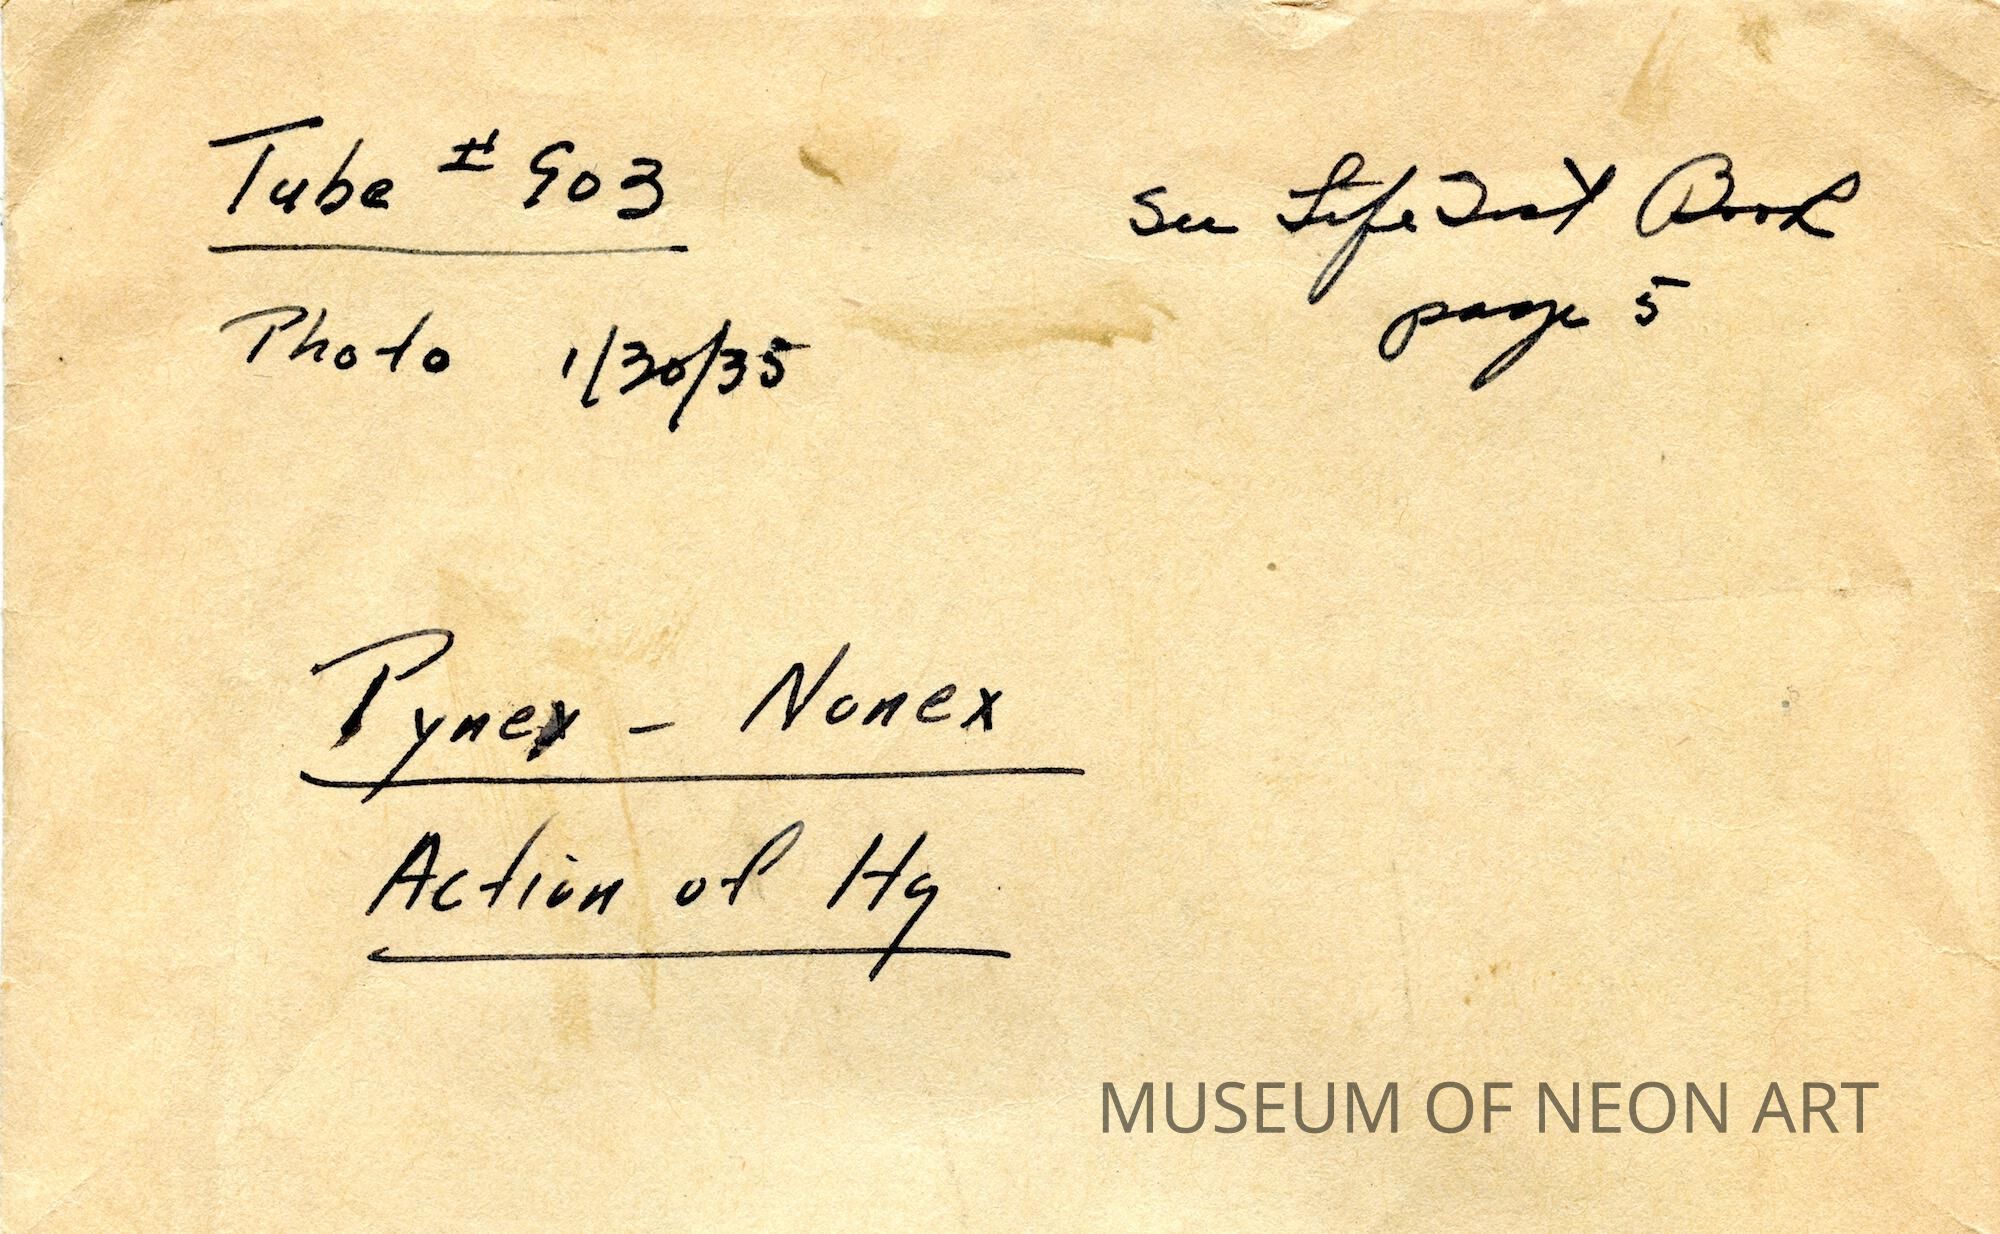 Tube # 903
See Life Test Book
page 5
Photo 1/30/35
Pynex - Nonex
Action of Hg
MUSEUM OF NEON ART